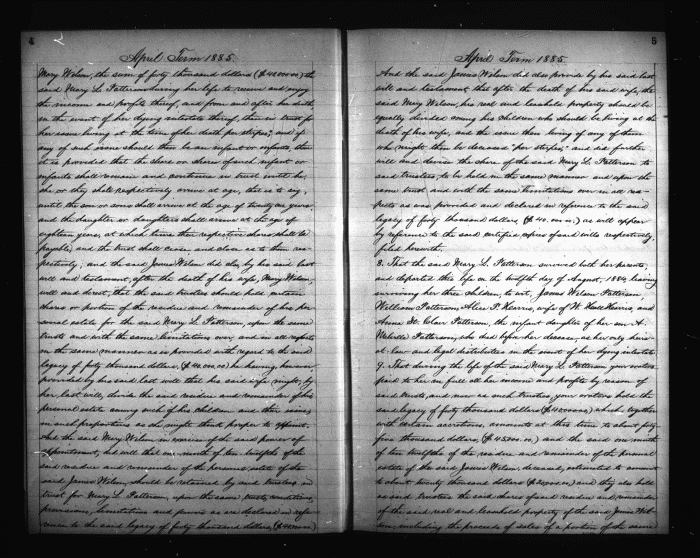 4
April Term 1885.
Mary Wilson, the sum of forty thousand dollars ($40000.00) the
said Mary L. Patterson during her life to receive and enjoy
the income and profits thereof, and from and after her death
in the event of her dying intestate thereof, then in trust for
her issue living at the time of her death per stirpes; and if
any of such issue should then be an infant or infants, then
it is provided that the share or shares of such infant or
infants shall remain and continue in trust until he,
she or they shall respectively arrive at age, that is to say,
until the son or sons shall arrive at the age of twenty one years
and the daughter or daughters shall arrive at the age of
eighteen years, at which times their respective shares shall be
payable, and the trust shall cease and close as to them res-
pectively; and the said James Wilson did also by his said last
will and testament, after the death of his wife, Mary Wilson,
will and direct, that the said trustees should hold certain
shares or portion of the residue and remainder of his per
sonal estate for the said Mary L. Patterson, upon the same
trusts and with the same limitations over, and in all respects
in the same manner as is provided with regard to the said
legacy of forty thousand dollars, ($40,000.00) he having, however
provided by his said last will that his said wife might, by
her last will, divide the said residue and remainder of his
personal estate among such of his children and their issues
in such proportions as she might think proper to appoint.
And the said Mary Wilson in exercise of the said power of
appointment, did will that one ninth of ten twelfths of the
said residue and remainder of the personal estate of the
said James Wilson, should be retained by said trustees in
trust for Mary L. Patterson, upon the same trusts, conditions,
provisions, limitations and powers as are declared in refer-
ence to the said legacy of forty thousand dollars, ($40000.00)
5
April Term 1885.
And the said James Wilson did also provide by his said last
will and testament that after the death of his said wife, the
said Mary Wilson, his real and leasehold property should be
equally divided among his children who should be living at the
death of his wife, and the issue then living of any of them
who might then be deceased "per stirpes;" and did further
will and devise the share of the said Mary L. Patterson to
said trustees, to be held in the same manner and upon the
same trust and with the same limitations over in all res-
pects as was provided and declared in reference to the said
legacy of forty thousand dollars, ($40.000.00) as will appear
by reference to the said certified copies of said wills respectively,
filed herewith.
8. That the said Mary L. Patterson survived both her parents,
and departed this life on the twelfth day of August, 1884, leaving
surviving her three children, to wit, James Wilson Patterson
William Patterson, Alice P. Harris, wife of W. Hall Harris, and
Anna Patterson, the infant daughter of her son A.
Melville Patterson, who died before her decease, as her only heirs
at law and legal distributees in the event of her dying intestate
9. That during the life of the said Mary L. Patterson your orators
paid to her in full all her income and profits by reason of
said trusts, and now as such trustees your orators hold the
said legacy of forty thousand dollars ($40,000.00) which together
with certain accretions, amounts at this time to about forty
five thousand dollars, ($45000.00) and the said one ninth
of ten twelfths of the residue and remainder of the personal
estate of the said James Wilson, deceased, estimated to amount
to about twenty thousand dollars ($20,000.00) and they also hold
as said trustees the said shares of said residue and remainder
of the said real and leasehold property of the said James Wil-
son, including the proceeds of sales of a portion of the same